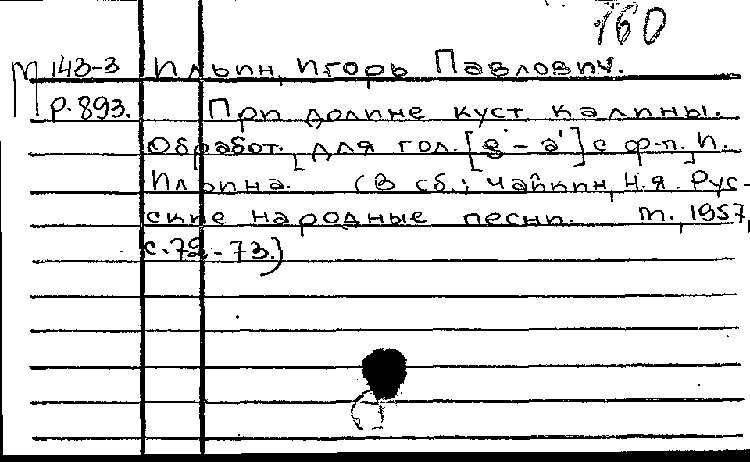 160
М 143-3 Ильин, Игорь Павлович.
р.893. При долине куст калины.
Обработ. для гол. [g - a'] с ф-п. И.
Ильина. (В сб.: Чайкин, Н.Я. Рус-
ские народные песни. М., 1957,
с.72-73.)